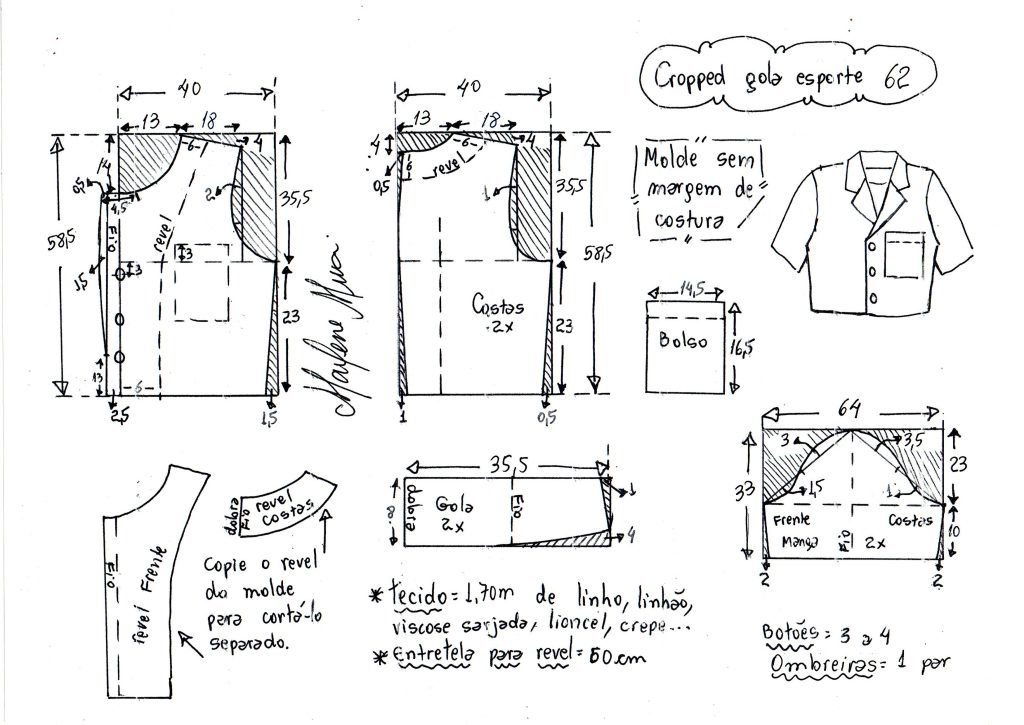 Cropped gola esporte 62
40
13
18
4
6
14
0,5
4,5
2
35,5
58,5
Fio
revel
3
3
1,5
23
13
6
2,5
1,5
Marlene Mukai
40
13
18
4
4
6
6
0,5
revel
1
35,5
58,5
Costas
2x
23
1
0,5
Molde sem
margem de
costura
14,5
Bolso
16,5
64
3
3,5
33
23
1,5
1
Frente
Costas
Manga
Fio
2x
10
2
2
35,5
8
dobra
Gola
2x
Fio
1
4
Fio
revel Frente
dobra
Fio
revel
costas
Copie o revel
do molde
para cortá-lo
separado.
* Tecido = 1,70m de linho, linhão,
viscose sarjada, lioncel, crepe...
* Entretela para revel = 60cm
Botões = 3 a 4
Ombreiras = 1 par